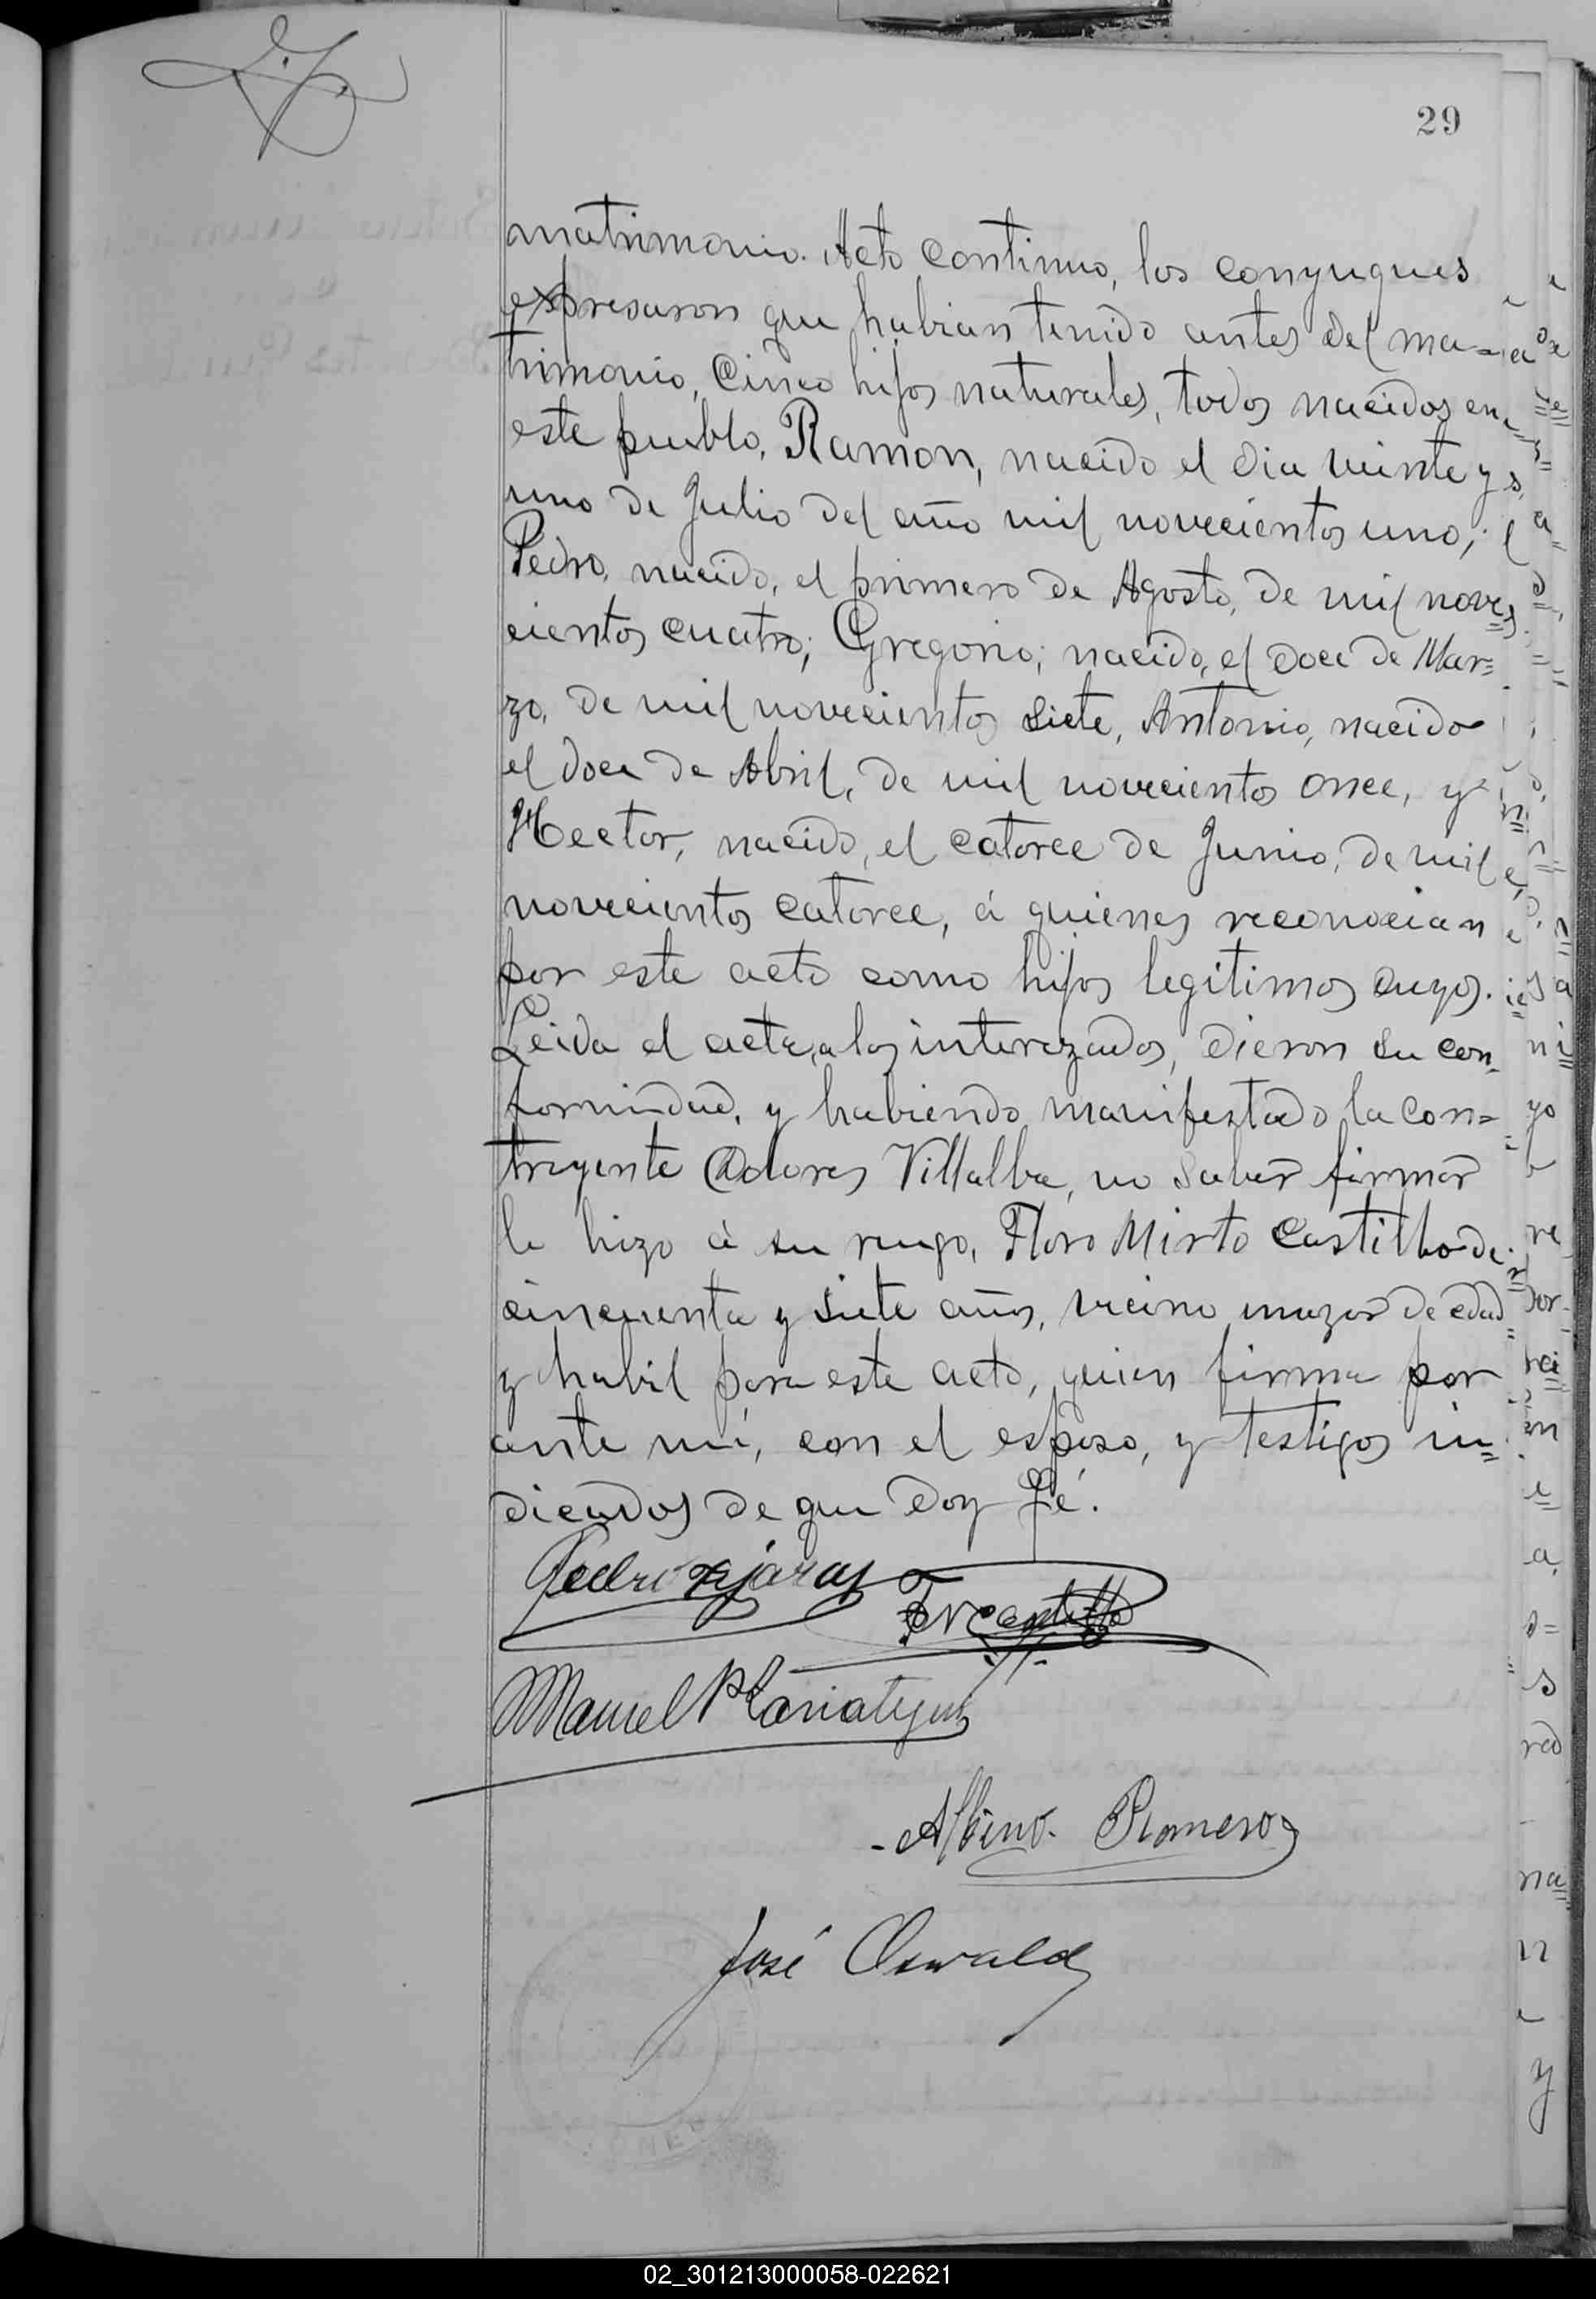 29
matrimonio. Acto continuo, los conyugues
expresaron que habian tenido antes del ma=
trimonio, cinco hijos naturales, todos nacidos en
este pueblo, Ramon, nacido el dia veinte y
uno de Julio del año mil novecientos uno;
Pedro, nacido, el primero de Agosto, de mil nove=
cientos cuatro; Gregorio; nacido, el doce de Mar=
zo, de mil novecientos siete, Antonio, nacido
el doce de Abril, de mil novecientos once, y
Hector, nacido, el catorce de Junio, de mil
novecientos catorce, á quienes reconocian
por este acto como hijos legitimos suyos.
Leida el acta, a los interezados, dieron su con=
formidad, y habiendo manifestado la con=
trayente Dolores Villalba, no saber firmar
lo hizo á su ruego, Floro Mirto Castillo de
cincuenta y siete años, vecino mayor de edad
y habil para este acto, quien firma por
ante mi, con el esposo, y testigos in=
dicados de que doy fé.
Pedro
Manuel
Albino Romero
José Oswald
02_301213000058-022621